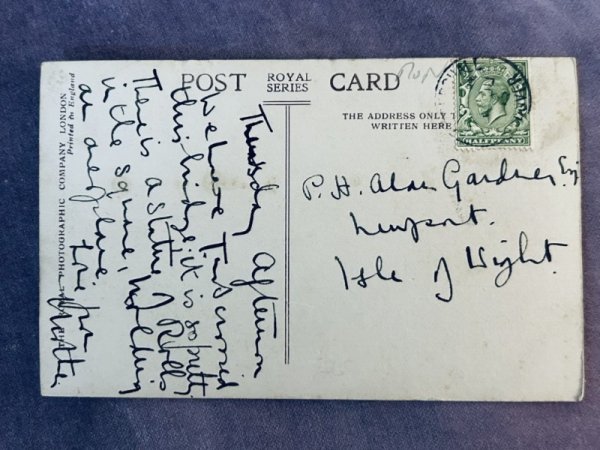 POST ROYAL SERIES CARD
THE ADDRESS ONLY T
WRITTEN HERE
PHOTOGRAPHIC COMPANY LONDON
Printed in England
HALFPENNY
P. H. Alan Gardner, Esq
Newport.
Isle of Wight.
Thursday Afternoon
We have just crossed
this bridge, it is so pretty
There is a statue of Rolls
in the square, holding
an aeroplane.
Love from
Mother